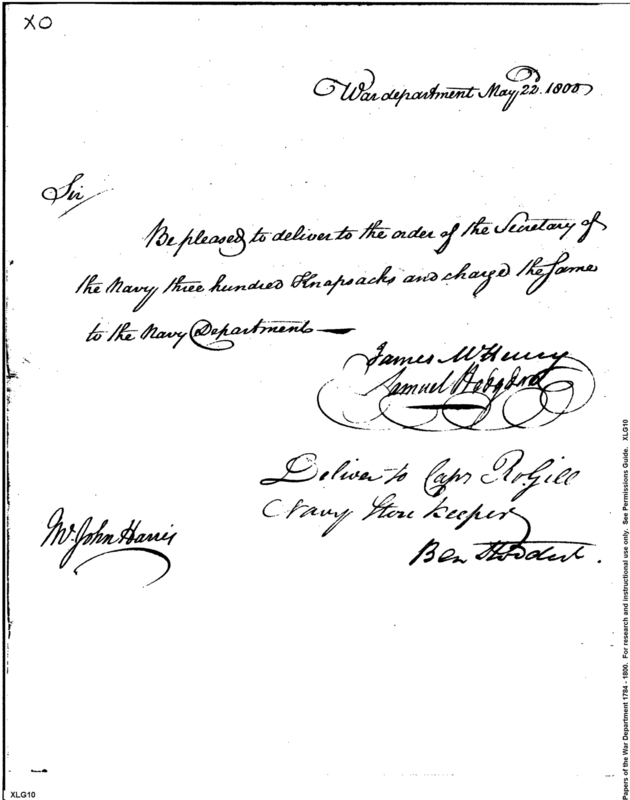 XO
War department May 22d. 1800
Sir
Be pleased to deliver to the order of the Secretary of
the Navy three hundred Knapsacks and charge the same
to the Navy Department—
James McHenry
Samuel Hodgdon
Deliver to Capt Ro Gill
Navy Store keeper
Ben Stoddert.
Mr. John Harris
XLG10
Papers of the War Department 1784 - 1800. For research and instructional use only. See Permissions Guide. XLG10